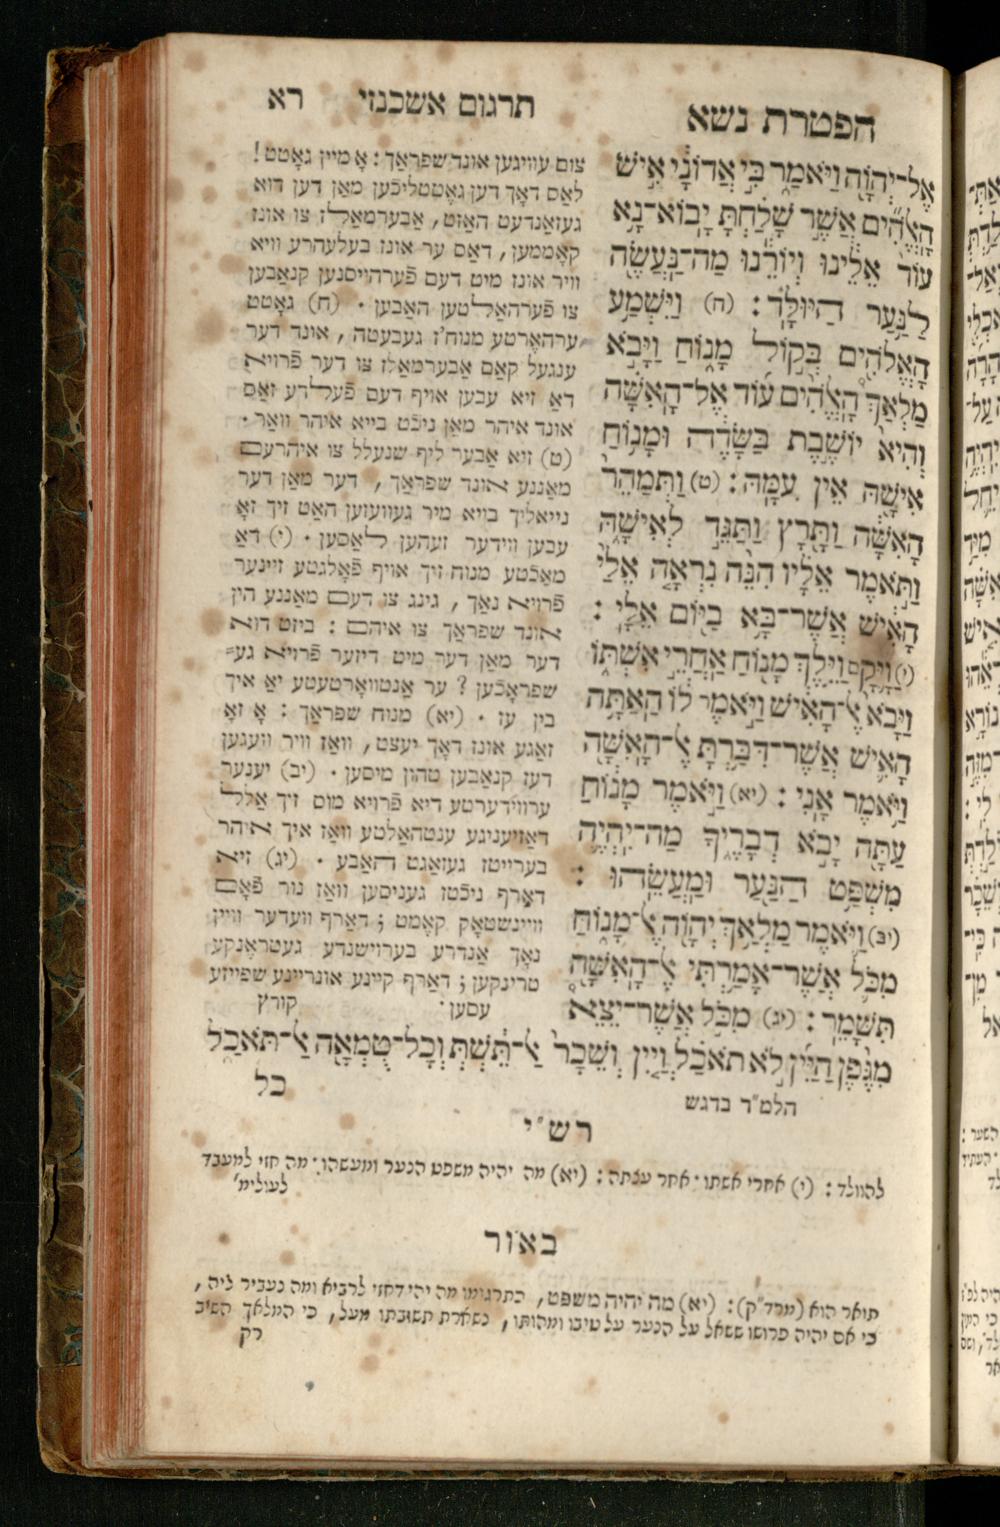 הפטרת נשא
תרגום אשכנזי
רא
אֶל־יְהוָֹה וַיֹּאמַר בִּי אֲדוֹנָי אִישׁ
הָאֱלֹהִים אֲשֶׁר שָׁלַחְתָּ יָבוֹא־נָא
עוֹד אֵלֵינוּ וְיוֹרֵנוּ מַה־נַּעֲשֶׂה
לַנַּעַר הַיּוּלָּד׃ (ח) וַיִּשְׁמַע
הָאֱלֹהִים בְּקוֹל מָנוֹחַ וַיָּבֹא
מַלְאַךְ הָאֱלֹהִים עוֹד אֶל־הָאִשָּׁה
וְהִיא יוֹשֶׁבֶת בַּשָּׂדֶה וּמָנוֹחַ
אִישָׁהּ אֵין עִמָּהּ׃ (ט) וַתְּמַהֵר
הָאִשָּׁה וַתָּרָץ וַתַּגֵּד לְאִישָׁהּ
וַתֹּאמֶר אֵלָיו הִנֵּה נִרְאָה אֵלַי
הָאִישׁ אֲשֶׁר־בָּא בַיּוֹם אֵלָי׃
(י) וַיָּקָם וַיֵּלֶךְ מָנוֹחַ אַחֲרֵי אִשְׁתּוֹ
וַיָּבֹא אֶל־הָאִישׁ וַיֹּאמֶר לוֹ הַאַתָּה
הָאִישׁ אֲשֶׁר־דִּבַּרְתָּ אֶל־הָאִשָּׁה
וַיֹּאמֶר אָנִי׃ (יא) וַיֹּאמֶר מָנוֹחַ
עַתָּה יָבֹא דְבָרֶיךָ מַה־יִּהְיֶה
מִשְׁפַּט הַנַּעַר וּמַעֲשֵׂהוּ׃
(יב) וַיֹּאמֶר מַלְאַךְ יְהוָֹה אֶל־מָנוֹחַ
מִכֹּל אֲשֶׁר־אָמַרְתִּי אֶל־הָאִשָּׁה
תִּשָּׁמֵר׃ (יג) מִכֹּל אֲשֶׁר־יֵצֵא
צום עוויגען אונד שפראַך: אָ מיין גאָטט!
לאַס דאָך דען געטטליכֿען מאַן דען דוא
געזאַנדעט האַזט, אַבערמאַלז צו אונז
קאָממען, דאַס ער אונז בעלעהרע וויא
וויר אונז מיט דעם פֿערהייסנען קנאַבען
צו פֿערהאַלטען האַבען. (ח) גאָטט
ערהאָרטע מנוח'ז געבעטה, אונד דער
ענגעל קאַם אַבערמאַלז צו דער פֿרויא
דאַ זיא עבען אויף דעם פֿעלדע זאַס
אונד איהר מאַן ניכֿט בייא איהר וואַר.
(ט) זיא אַבער ליף שנעלל צו איהרעם
מאַננע אונד שפראַך, דער מאַן דער
נייאליך בויא מיר געוועזען האַט זיך זאָ
עבען ווידער זעהען לאַסען. (י) דאַ
מאַכֿטע מנוח זיך אויף פֿאָלגטע זיינער
פֿרויא נאַך, גינג צו דעם מאַננע הין
אונד שפראַך צו איהם: ביזט דוא
דער מאַן דער מיט דיזער פֿרויא גע=
שפראָכֿען? ער אַנטוואָרטעטע יאַ איך
בין עז. (יא) מנוח שפראַך: אָ זאָ
זאַגע אונז דאָך יעצט, וואַז וויר וועגען
דעז קנאַבען טהון מיסען. (יב) יענער
ערווידערטע דיא פֿרויא מוס זיך אַלל
דאַזיעניגע ענטהאַלטע וואַז איך איהר
בערייטז געזאַגט האַבע. (יג) זיא
דאַרף ניכֿטז געניסען וואַז נור פֿאָם
וויינשטאָק קאָמט; דאַרף וועדער וויין
נאָך אַנדרע בערוישנדע געטראַנקע
טרינקען; דאַרף קיינע אונריינע שפייזע
עסען. קורץ
מִגֶּפֶן הַיַּיִן לֹא תֹאכַל וְיַיִן וְשֵׁכָר אַל־תֵּשְׁתְּ וְכָל־טֻמְאָה אַל־תֹּאכַל
כל
הלמ״ד בדגש
רש״י
להוולד: (י) אחרי אשתו. אחר עצתה: (יא) מה יהיה משפט הנער ומעשהו. מה חזי למעבד
לעולימ'
באור
תואר הוא (מרד״ק): (יא) מה יהיה משפט, כתרגומו מה יהי דחזי לרביא ומה נעביד ליה,
כי אם יהיה פרושו ששאל על הנער על טיבו ומהותו, נשארת תשובתו מעל, כי המלאך השיב
רק